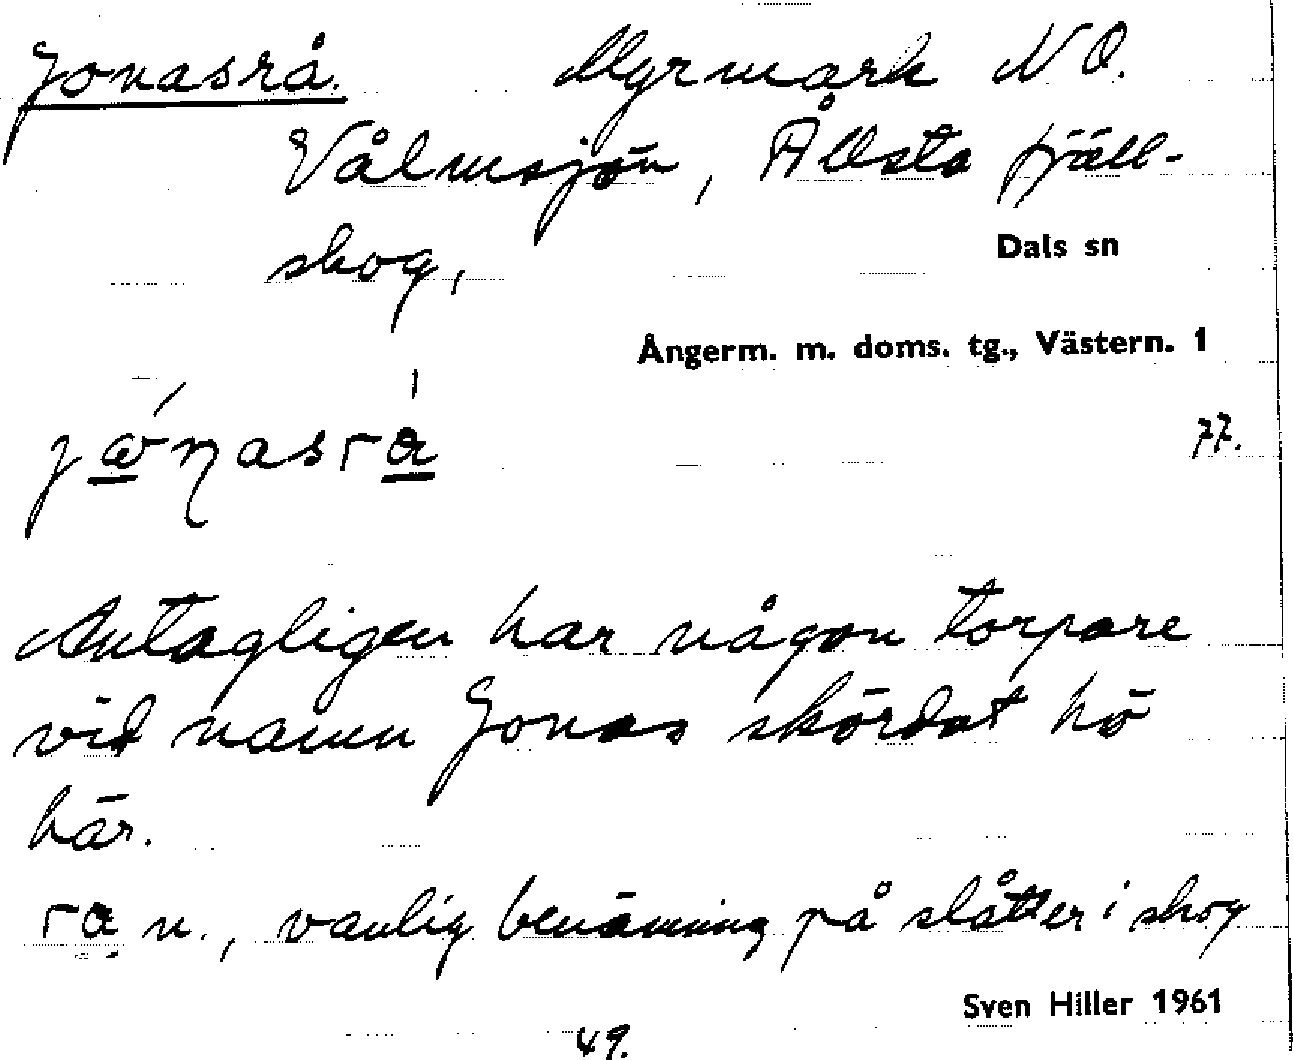 Jonasrå. Myrmark N O.
Vålmsjön, Ållsta fjäll-
skog,
Dals sn
Ångerm. m. doms. tg., Västern. 1
77.
Antagligen har någon torpare
vid namn Jonas skördat hö
här.
n., vanlig benämning på slåtter i skog
Sven Hiller 1961
49.